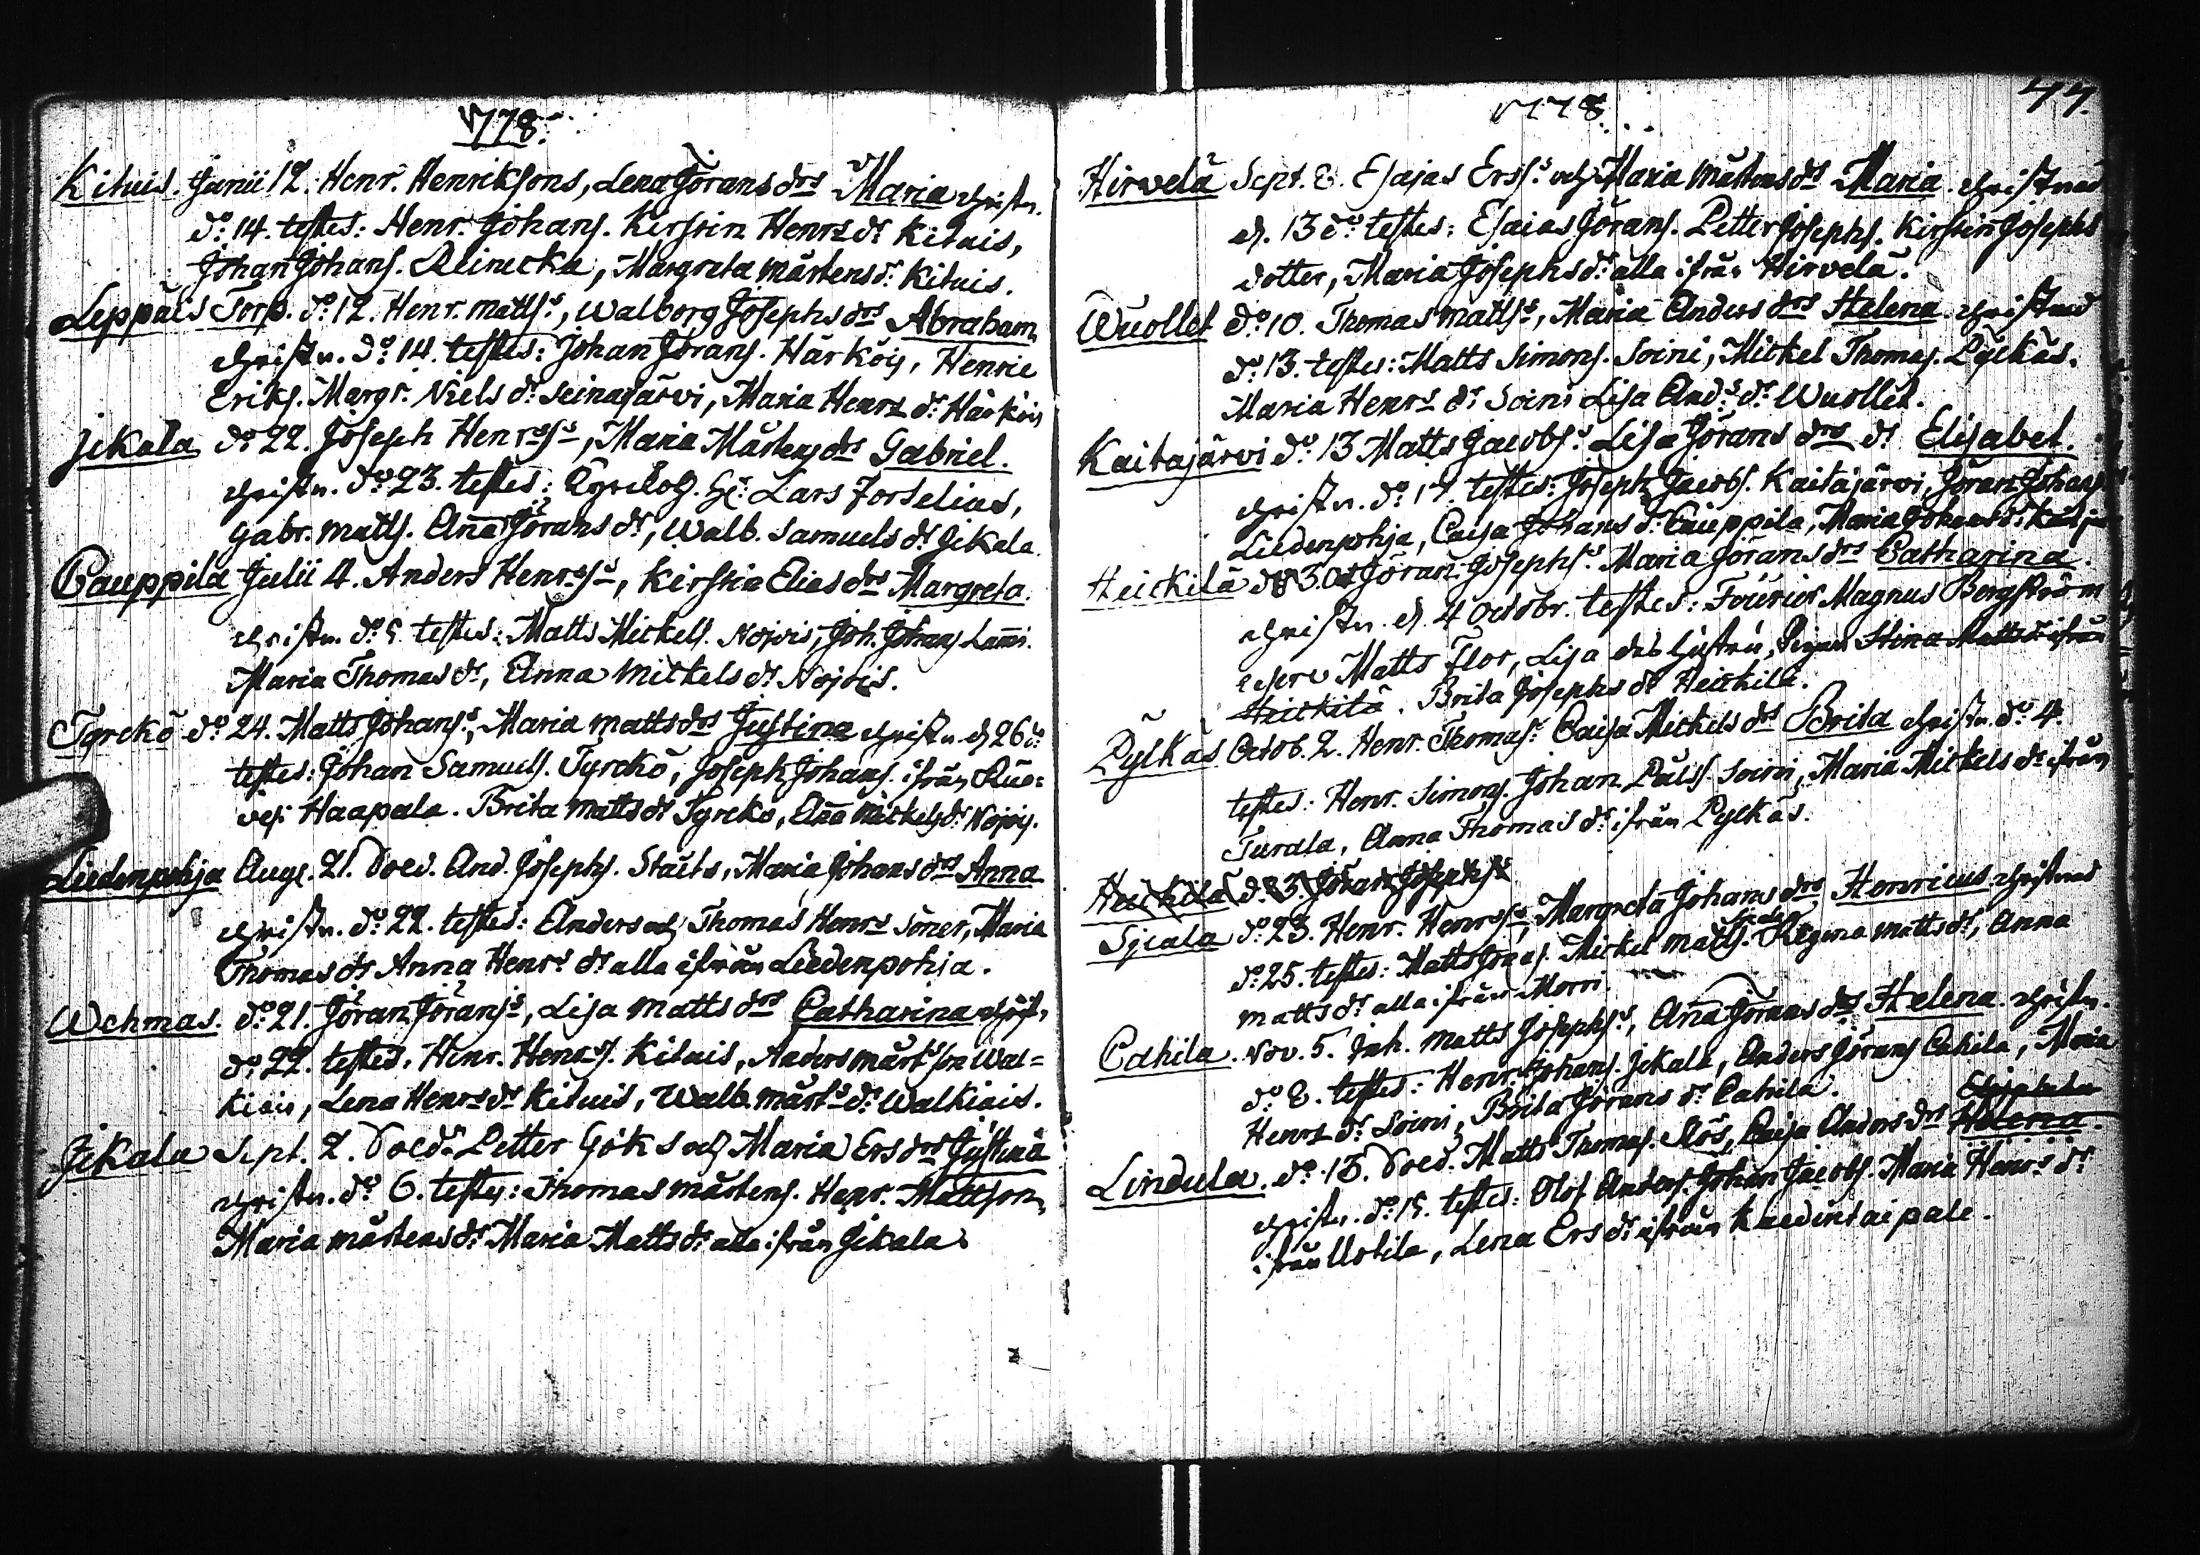 1778.
Kituis. Junii 12. Henr. Henriksons, Lena Jörans drs Maria christn.
do. 14. testes: Henr. Johans. Kirstin Henrs dr Kituis,
Johan Johans. Reinicka, Margreta Mårtens dr. Kituis.
Leppäis Torp. do. 12. Henr. Matts s, Walborg Josephs drs Abraham
christn. do. 14. testes: Johan Jörans. Härköij, Henric
Eriks. Margr. Niels dr. Seinajärvi, Maria Henrs dr. Härköij
Jekala do. 22. Joseph Henrss, Maria Mårtens drs Gabriel.
christn. do 23. testes: Hr. Lars Forselius,
Gabr. Matts. Anna Jörans dr, Walb. Samuels dr Jikala.
Cauppila Julii 4. Anders Henrss, Kirstin Elias drs Margreta.
christn. do. 5. testes: Matts Mickels. Nojois, Joh. Johans Lammi.
Maria Thomas dr, Anna Mickels dr. Nojois.
Tyrckö do. 24. Matts Johans s, Maria Matts drs Justina christn. d. 26 do.
testes: Johan Samuels. Tyrckö, Joseph Johans. ifrån Rue=
vesi Haapala. Brita Matts dr Tyrckö, Anna Mickels dr. Nojois.
Liedenpohja Aug. 21. Sold. And. Josephs. Stålts, Maria Johans drs Anna
christn. do. 22. testes: Anders och Thomas Henrs Söner, Maria
Thomas dr Anna Henrs dr alla ifrån Liedenpohja.
Wehmas. do. 21. Jöran Jörans s, Lisa Matts drs Catharina christ.
do. 22. testes. Henr. Henrs. Kituis, Anders Mårtsson Wal=
kiais, Lena Henrs dr Kituis, Walb. Mårts dr. Walkiais.
Jikala Sept. 2. Sold. Petter Göks och Maria Ers drs Justina
christn. do 6. testes: Thomas Mårtens. Henr. Mattson,
Maria Mårtens dr. Maria Matts dr. alla ifrån Jikala
1778.
47.
Hirvelä Sept. 8. Esajas Ers s. och Maria Mårtens drs Maria christnad
d. 13 do. testes: Esaias Jörans. Petter Josephs. Kirstin Josephs
dotter, Maria Josephs dr. alla ifrån Hirvelä.
Wuollet do 10. Thomas Matts s, Maria Anders drs Helena christnad
do. 13. testes: Matts Simons. Soini, Mickel Thomas. Pylkäs.
Maria Henrs dr Soini Lisa Ands dr. Wuollet.
Kaitajärvi do. 13 Matts Jacobs s. Lisa Jörans drs dr Elisabet.
christn. do. 17. testes: Joseph Jacobs. Kaitajärvi, Jöran Johans
Liedenpohja, Caisa Johans dr. Cauppila, Maria Johans dr.
Heickilä do 30. Jöran Josephs s. Maria Jörans drs Catharina.
christn. d. 4 Octobr. testes: Fourier Magnus Bergström
Matts Flor, Lisa Stina Matts dr ifrån
Heickilä. Brita Josephs dr Heickilä.
Pylkäs Octob. 2. Henr. Thomas s. Caisa Mickels drs Brita christn. do. 4.
testes: Henr. Simons. Johan Påls s. Soini, Maria Mickels dr. ifrån
Turala, Anna Thomas dr. ifrån Pylkäs.
Heickilä do. 3. Jöran Josephs s
Sjeala do. 23. Henr. Henrss, Margreta Johans drs Henricus christnad
do. 25. testes: Matts Mickel Matts. Regina Matts dr, Anna
Matts dr. alla ifrån Morri.
Cahila. Nov. 5. Inh. Matts Josephs s, Anna Jörans drs Helena. christn.
do. 8. testes: Henr. Johans. Jekala, Anders Jörans Cahila, Maria
Henrs dr. Soini, Brita Jörans dr. Cahila.
Lindula. do. 13. Sold. Matts Thomas. Caisa Anders drs Helena.
christn. do. 15. testes: Olof Anders. Johan Jacobs. Maria Henrs dr
ifrån Uotila, Lena Ers dr. ifrån